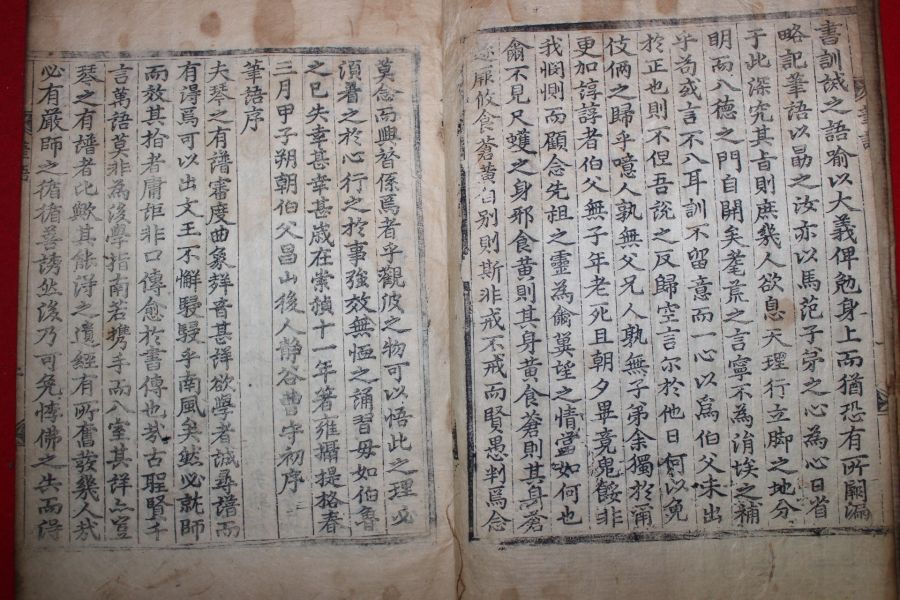 書訓誡之語喩以大義俾勉身上而猶恐有所闕漏
略記筆語以勗之汝亦以馬范子弟之心為心日省
于此深究其旨則庶幾人欲息天理行立脚之地分
明而八德之門自開矣耄荒之言寧不為涓埃之補
乎苟或言不入耳訓不留意而一心以為伯父未出
於正也則不但吾說之反歸空言尔於他日何以免
伎倆之歸乎噫人孰無父兄人孰無子弟余獨於爾
更加諄諄者伯父無子年老死且朝夕畢竟鬼餒非
我憫惻而顧念先祖之靈為爾冀望之情當如何也
爾不見尺蠖之身邪食黃則其身黃食蒼則其身蒼
食蒼黃自别則斯非戒不戒而賢愚判焉念
莫念而興替係焉者乎觀彼之物可以悟此之理必
須着之於心行之於事強效無恆之誦習毋如伯魯
之已失幸甚幸甚歳在崇禎十一年著雍攝提格春
三月甲子朔朝伯父昌山後人静谷曹守初序
筆語序
夫琴之有譜審度曲象群音甚詳欲學者誠尋譜而
有得焉可以出文王不懈駸駸乎南風矣然必就師
而效其拾者庸詎非口傳愈於書傳也㢤古聖賢千
言萬語莫非為後學指南若携手而入室其詳亦豈
琴之有譜者比歟其能淂之遺經有所奮發幾人㢤
必有嚴師之循循善誘然後乃可免
佛之失而淂